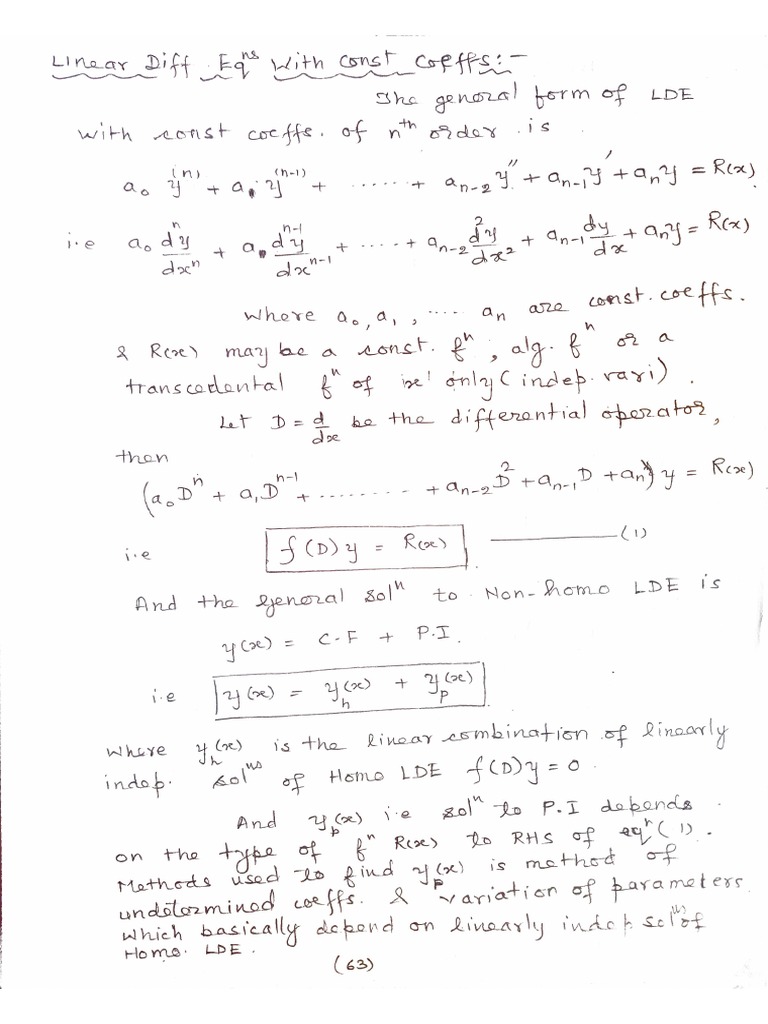 Linear Diff. Eqns With Const Coeffs:-
The general form of LDE
with const coeffs. of nth order is
a₀ y⁽ⁿ⁾ + a₁ y⁽ⁿ⁻¹⁾ + ...... + aₙ₋₂ y'' + aₙ₋₁ y' + aₙ y = R(x)
i.e a₀ dⁿy/dxⁿ + a₁ dⁿ⁻¹y/dxⁿ⁻¹ + .... + aₙ₋₂ d²y/dx² + aₙ₋₁ dy/dx + aₙy = R(x)
Where a₀, a₁, .... aₙ are const. coeffs.
& R(x) may be a const. fⁿ, alg. fⁿ or a
transcedental fⁿ of 'x' only (indep. vari).
Let D = d/dx be the differential operator,
then
(a₀Dⁿ + a₁Dⁿ⁻¹ + ........ + aₙ₋₂D² + aₙ₋₁D + aₙ) y = R(x)
i.e f(D)y = R(x) ———(1)
And the general solⁿ to Non-homo LDE is
y(x) = C.F + P.I.
i.e y(x) = yₕ(x) + yₚ(x)
where yₕ(x) is the linear combination of linearly
indep. solⁿˢ of Homo LDE f(D)y = 0.
And yₚ(x) i.e solⁿ to P.I depends
on the type of fⁿ R(x) to RHS of eqⁿ(1).
Methods used to find yₚ(x) is method of
undetermined coeffs. & variation of parameters
which basically depend on linearly indep. solⁿ of
Homo. LDE.
(63)